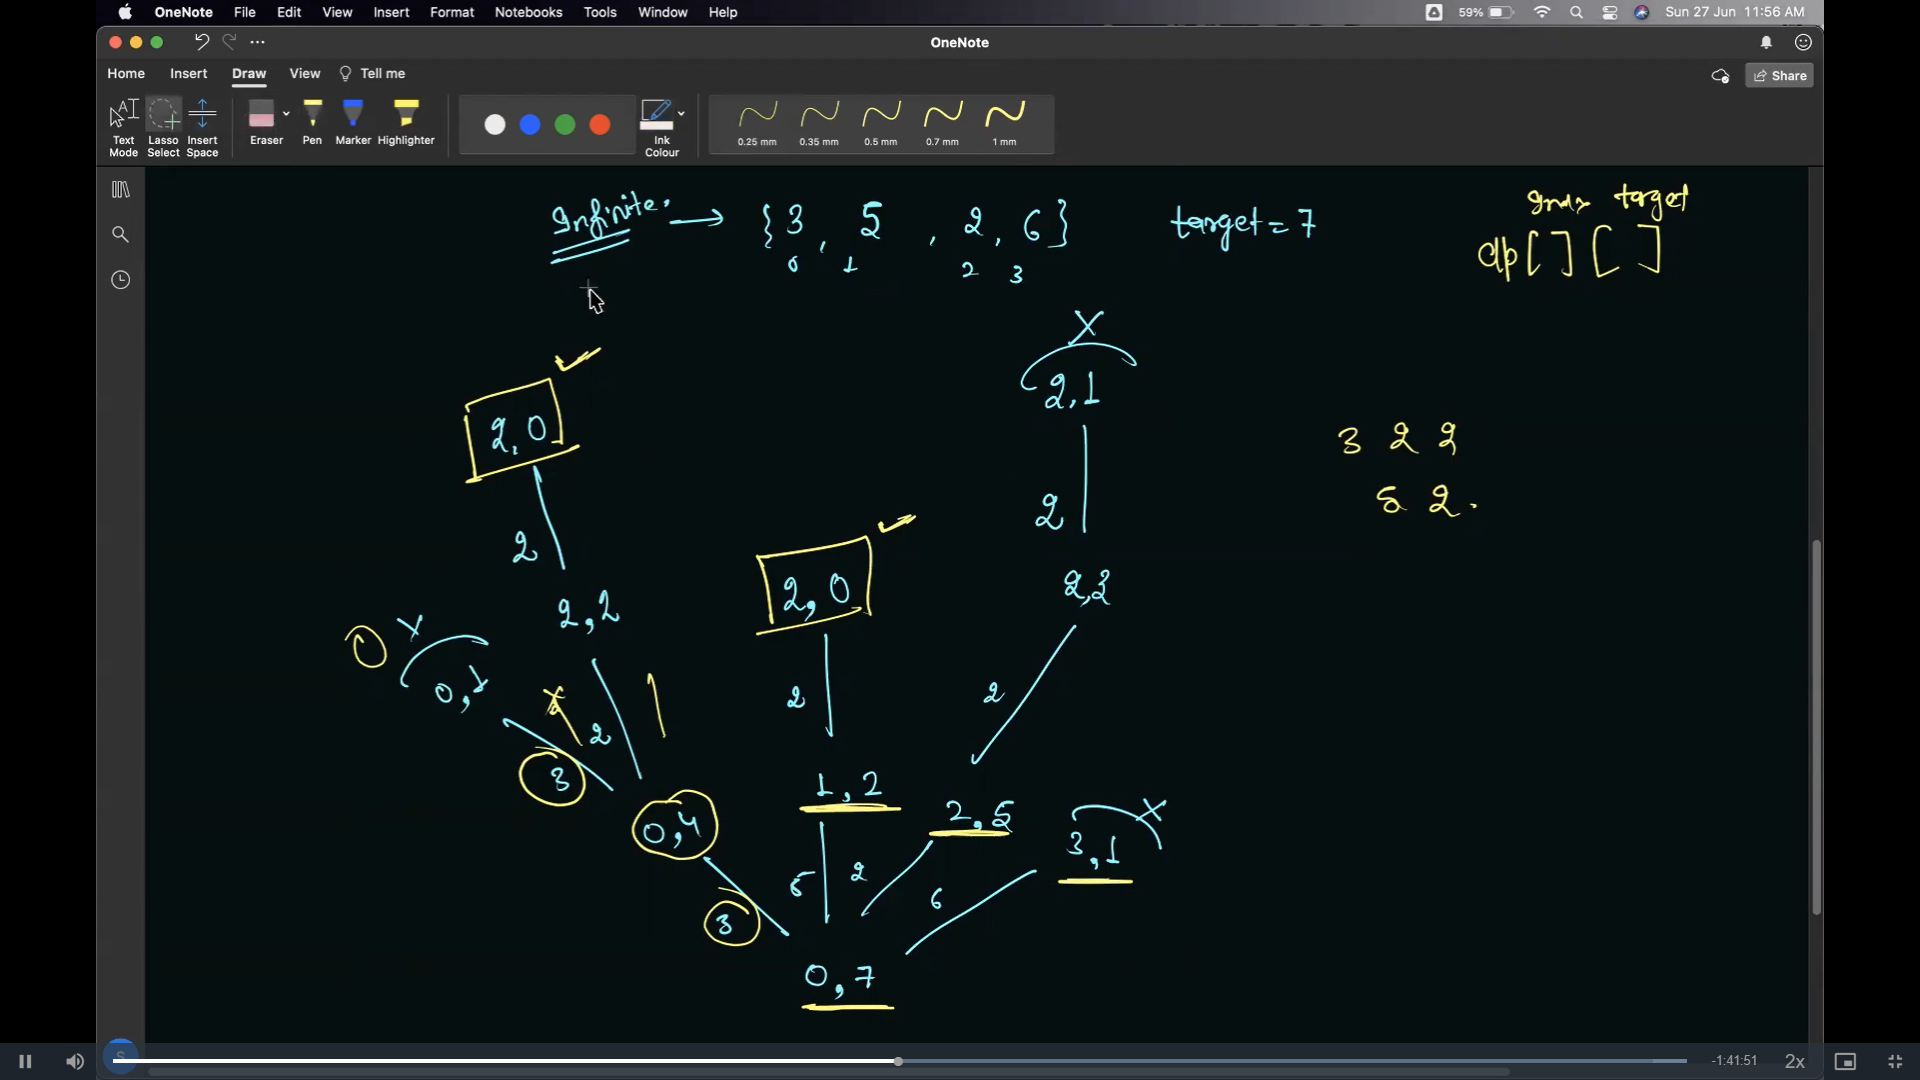 OneNote File Edit View Insert Format Notebooks Tools Window Help 59% Sun 27 Jun 11:56 AM
OneNote
Home Insert Draw View Tell me Share
Text Mode Lasso Select Insert Space Eraser Pen Marker Highlighter Ink Colour 0.25 mm 0.35 mm 0.5 mm 0.7 mm 1 mm
Infinite. → {3, 5, 2, 6} target = 7
0 1 2 3
target
dp[ ][ ]
X
2,1
2,0
3 2 2
5 2.
2
2
2,0
2,2
2,3
X
0,1
X
2
2
2
3
1,2
2,5
X
3,1
0,4
5
2
6
3
0,7
S
-1:41:51 2x